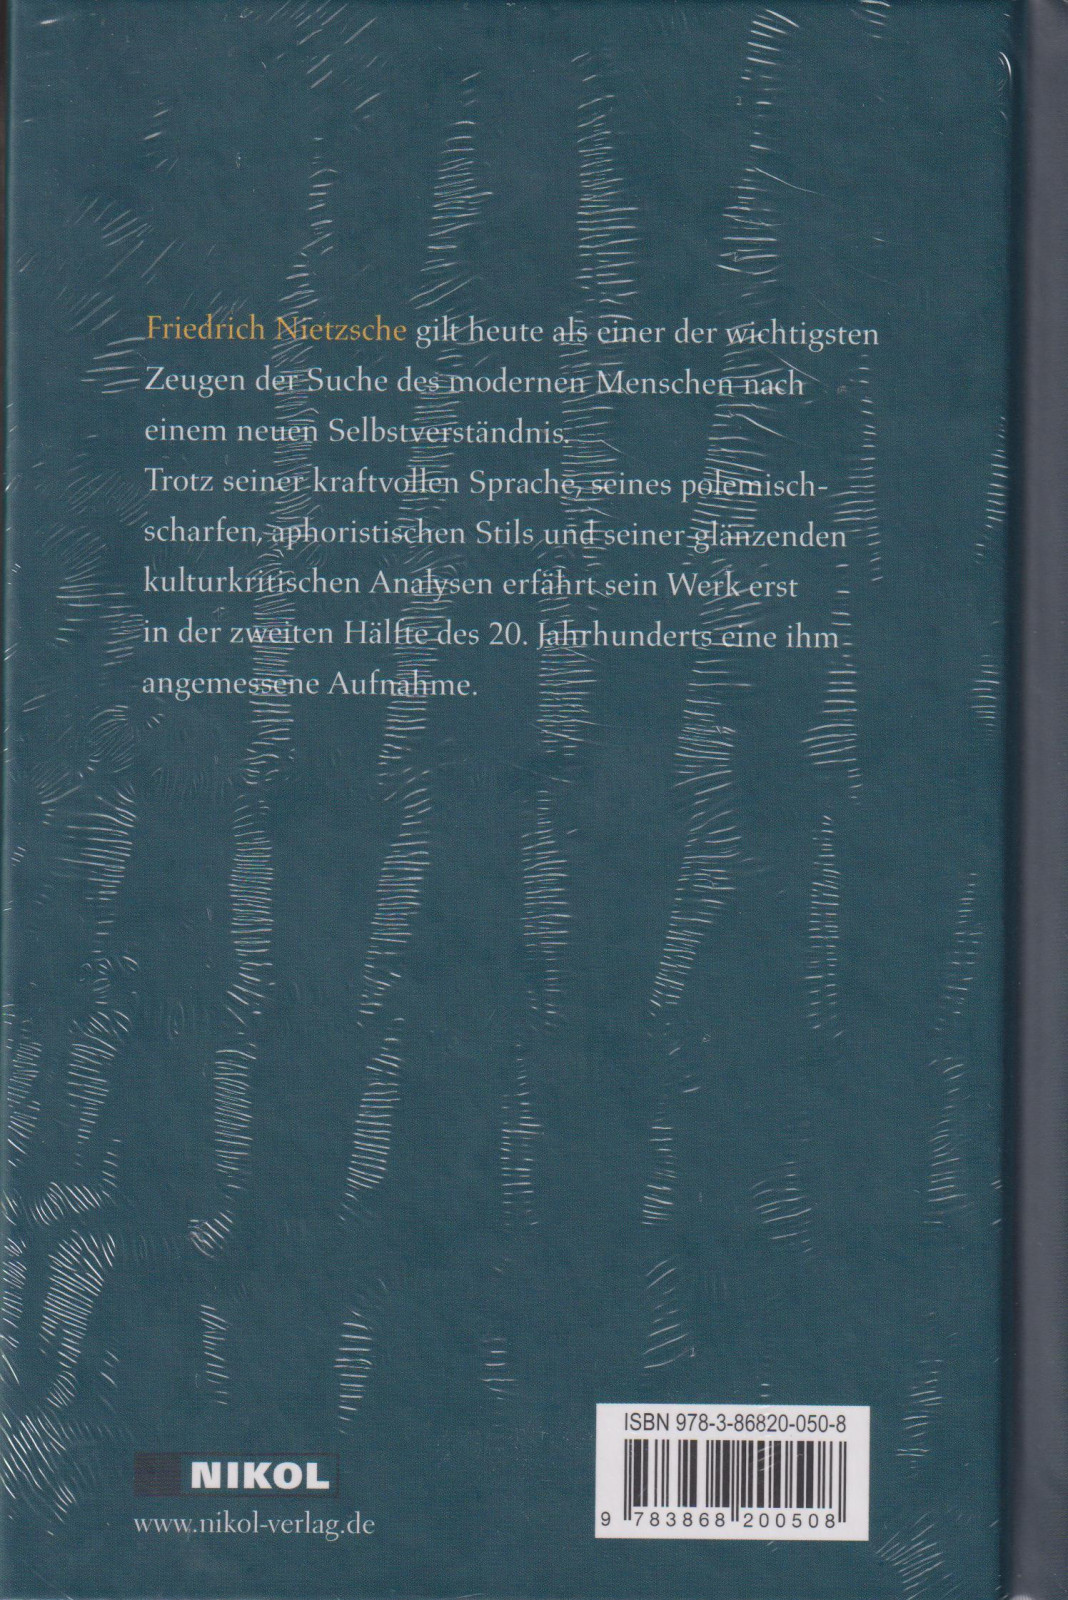 Friedrich Nietzsche gilt heute als einer der wichtigsten
Zeugen der Suche des modernen Menschen nach
einem neuen Selbstverständnis.
Trotz seiner kraftvollen Sprache, seines polemisch-
scharfen, aphoristischen Stils und seiner glänzenden
kulturkritischen Analysen erfährt sein Werk erst
in der zweiten Hälfte des 20. Jahrhunderts eine ihm
angemessene Aufnahme.
NIKOL
www.nikol-verlag.de
ISBN 978-3-86820-050-8
9 783868 200508